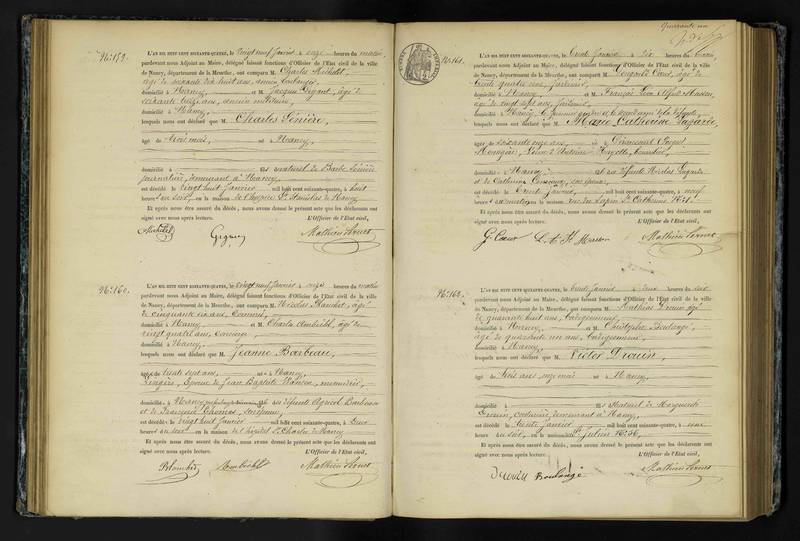 No. 159.
L'AN MIL HUIT CENT SOIXANTE-QUATRE, le vingt neuf Janvier à onze heures du matin,
pardevant nous Adjoint au Maire, délégué faisant fonctions d'Officier de l'Etat civil de la ville
de Nancy, département de la Meurthe, ont comparu M. Charles Michelet,
âgé de soixante dix huit ans, ancien boulanger,
domicilié à Nancy, et M. Jacques Gigant, âgé de
soixante onze ans, ancien militaire,
domicilié à Nancy,
lesquels nous ont déclaré que M. Charles Sénière,
âgé de trois mois, né à Nancy,
domicilié fils naturel de Barbe Sénière
journalière, demeurant à Nancy,
est décédé le vingt huit Janvier mil huit cent soixante-quatre, à huit
heures du soir, en la maison de l'hospice St. Stanislas de Nancy.
Et après nous être assuré du décès, nous avons dressé le présent acte que les déclarants ont
signé avec nous après lecture. L'Officier de l'Etat civil,
No. 160.
L'AN MIL HUIT CENT SOIXANTE-QUATRE, le vingt neuf Janvier à onze heures du matin
pardevant nous Adjoint au Maire, délégué faisant fonctions d'Officier de l'Etat civil de la ville
de Nancy, département de la Meurthe, ont comparu M. Nicolas âgé
de cinquante six ans,
domicilié à Nancy, et M. Charles âgé de
vingt quatre ans, concierge,
domicilié à Nancy,
lesquels nous ont déclaré que M. Jeanne Barbeau,
âgée de trente sept ans, née à Nancy,
lingère, épouse de Jean Baptiste menuisier,
domiciliée à Nancy fille du défunt Agricol Barbeau
et de Françoise Thomas, son épouse,
est décédée le vingt huit Janvier mil huit cent soixante-quatre, à deux
heures du soir en la maison de l'hôpital St. Charles de Nancy.
Et après nous être assuré du décès, nous avons dressé le présent acte que les déclarants ont
signé avec nous après lecture. L'Officier de l'Etat civil,
Quarante un
No. 161.
L'AN MIL HUIT CENT SOIXANTE-QUATRE, le trente Janvier à dix heures du matin,
pardevant nous Adjoint au Maire, délégué faisant fonctions d'Officier de l'Etat civil de la ville
de Nancy, département de la Meurthe, ont comparu M. Cœur, âgé de
trente quatre ans,
domicilié à Nancy, et M. François Léon Alfred Masson,
âgé de vingt sept ans,
domicilié à Nancy, le premier gendre et le second ami de la défunte,
lesquels nous ont déclaré que M. Marie Catherine Lagarde,
âgée de soixante onze ans, née à
veuve d'Antoine
domiciliée à Nancy, fille des défunts Nicolas Lagarde
et de Catherine son épouse,
est décédée le trente Janvier, mil huit cent soixante-quatre, à neuf
heures du matin en la maison rue du Tapis Ste. Catherine
Et après nous être assuré du décès, nous avons dressé le présent acte que les déclarants ont
signé avec nous après lecture. L'Officier de l'Etat civil,
G. Cœur L. A. F. Masson
No. 162.
L'AN MIL HUIT CENT SOIXANTE-QUATRE, le trente Janvier à deux heures du soir
pardevant nous Adjoint au Maire, délégué faisant fonctions d'Officier de l'Etat civil de la ville
de Nancy, département de la Meurthe, ont comparu M. Mathias Drouin âgé
de quarante huit ans,
domicilié à Nancy, et M. Christophe Boulangé,
âgé de quarante un ans,
domicilié à Nancy,
lesquels nous ont déclaré que M. Victor Drouin,
âgé de trois ans onze mois né à Nancy,
domicilié fils naturel de Marguerite
Drouin, couturière, demeurant à Nancy,
est décédé le trente Janvier mil huit cent soixante-quatre, à une
heure du soir, en la maison rue St. Julien No. 36.
Et après nous être assuré du décès, nous avons dressé le présent acte que les déclarants ont
signé avec nous après lecture. L'Officier de l'Etat civil,
Drouin Boulangé